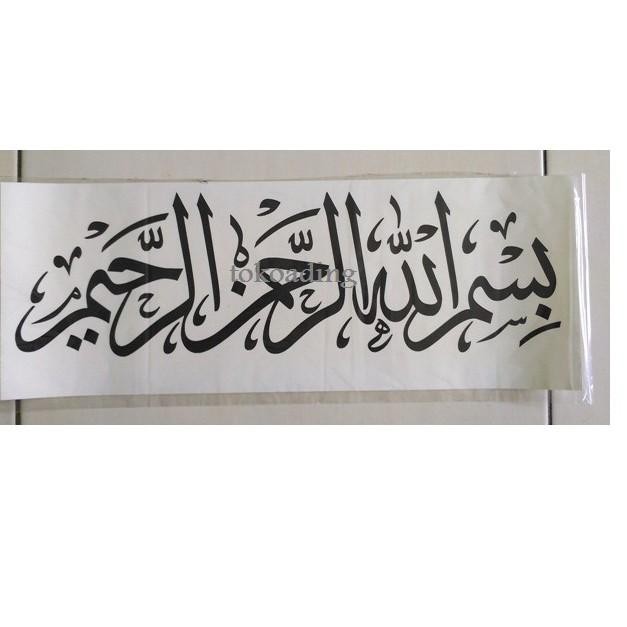 بِسْمِ اللهِ الرَّحْمٰنِ الرَّحِيْمِ
tokoading